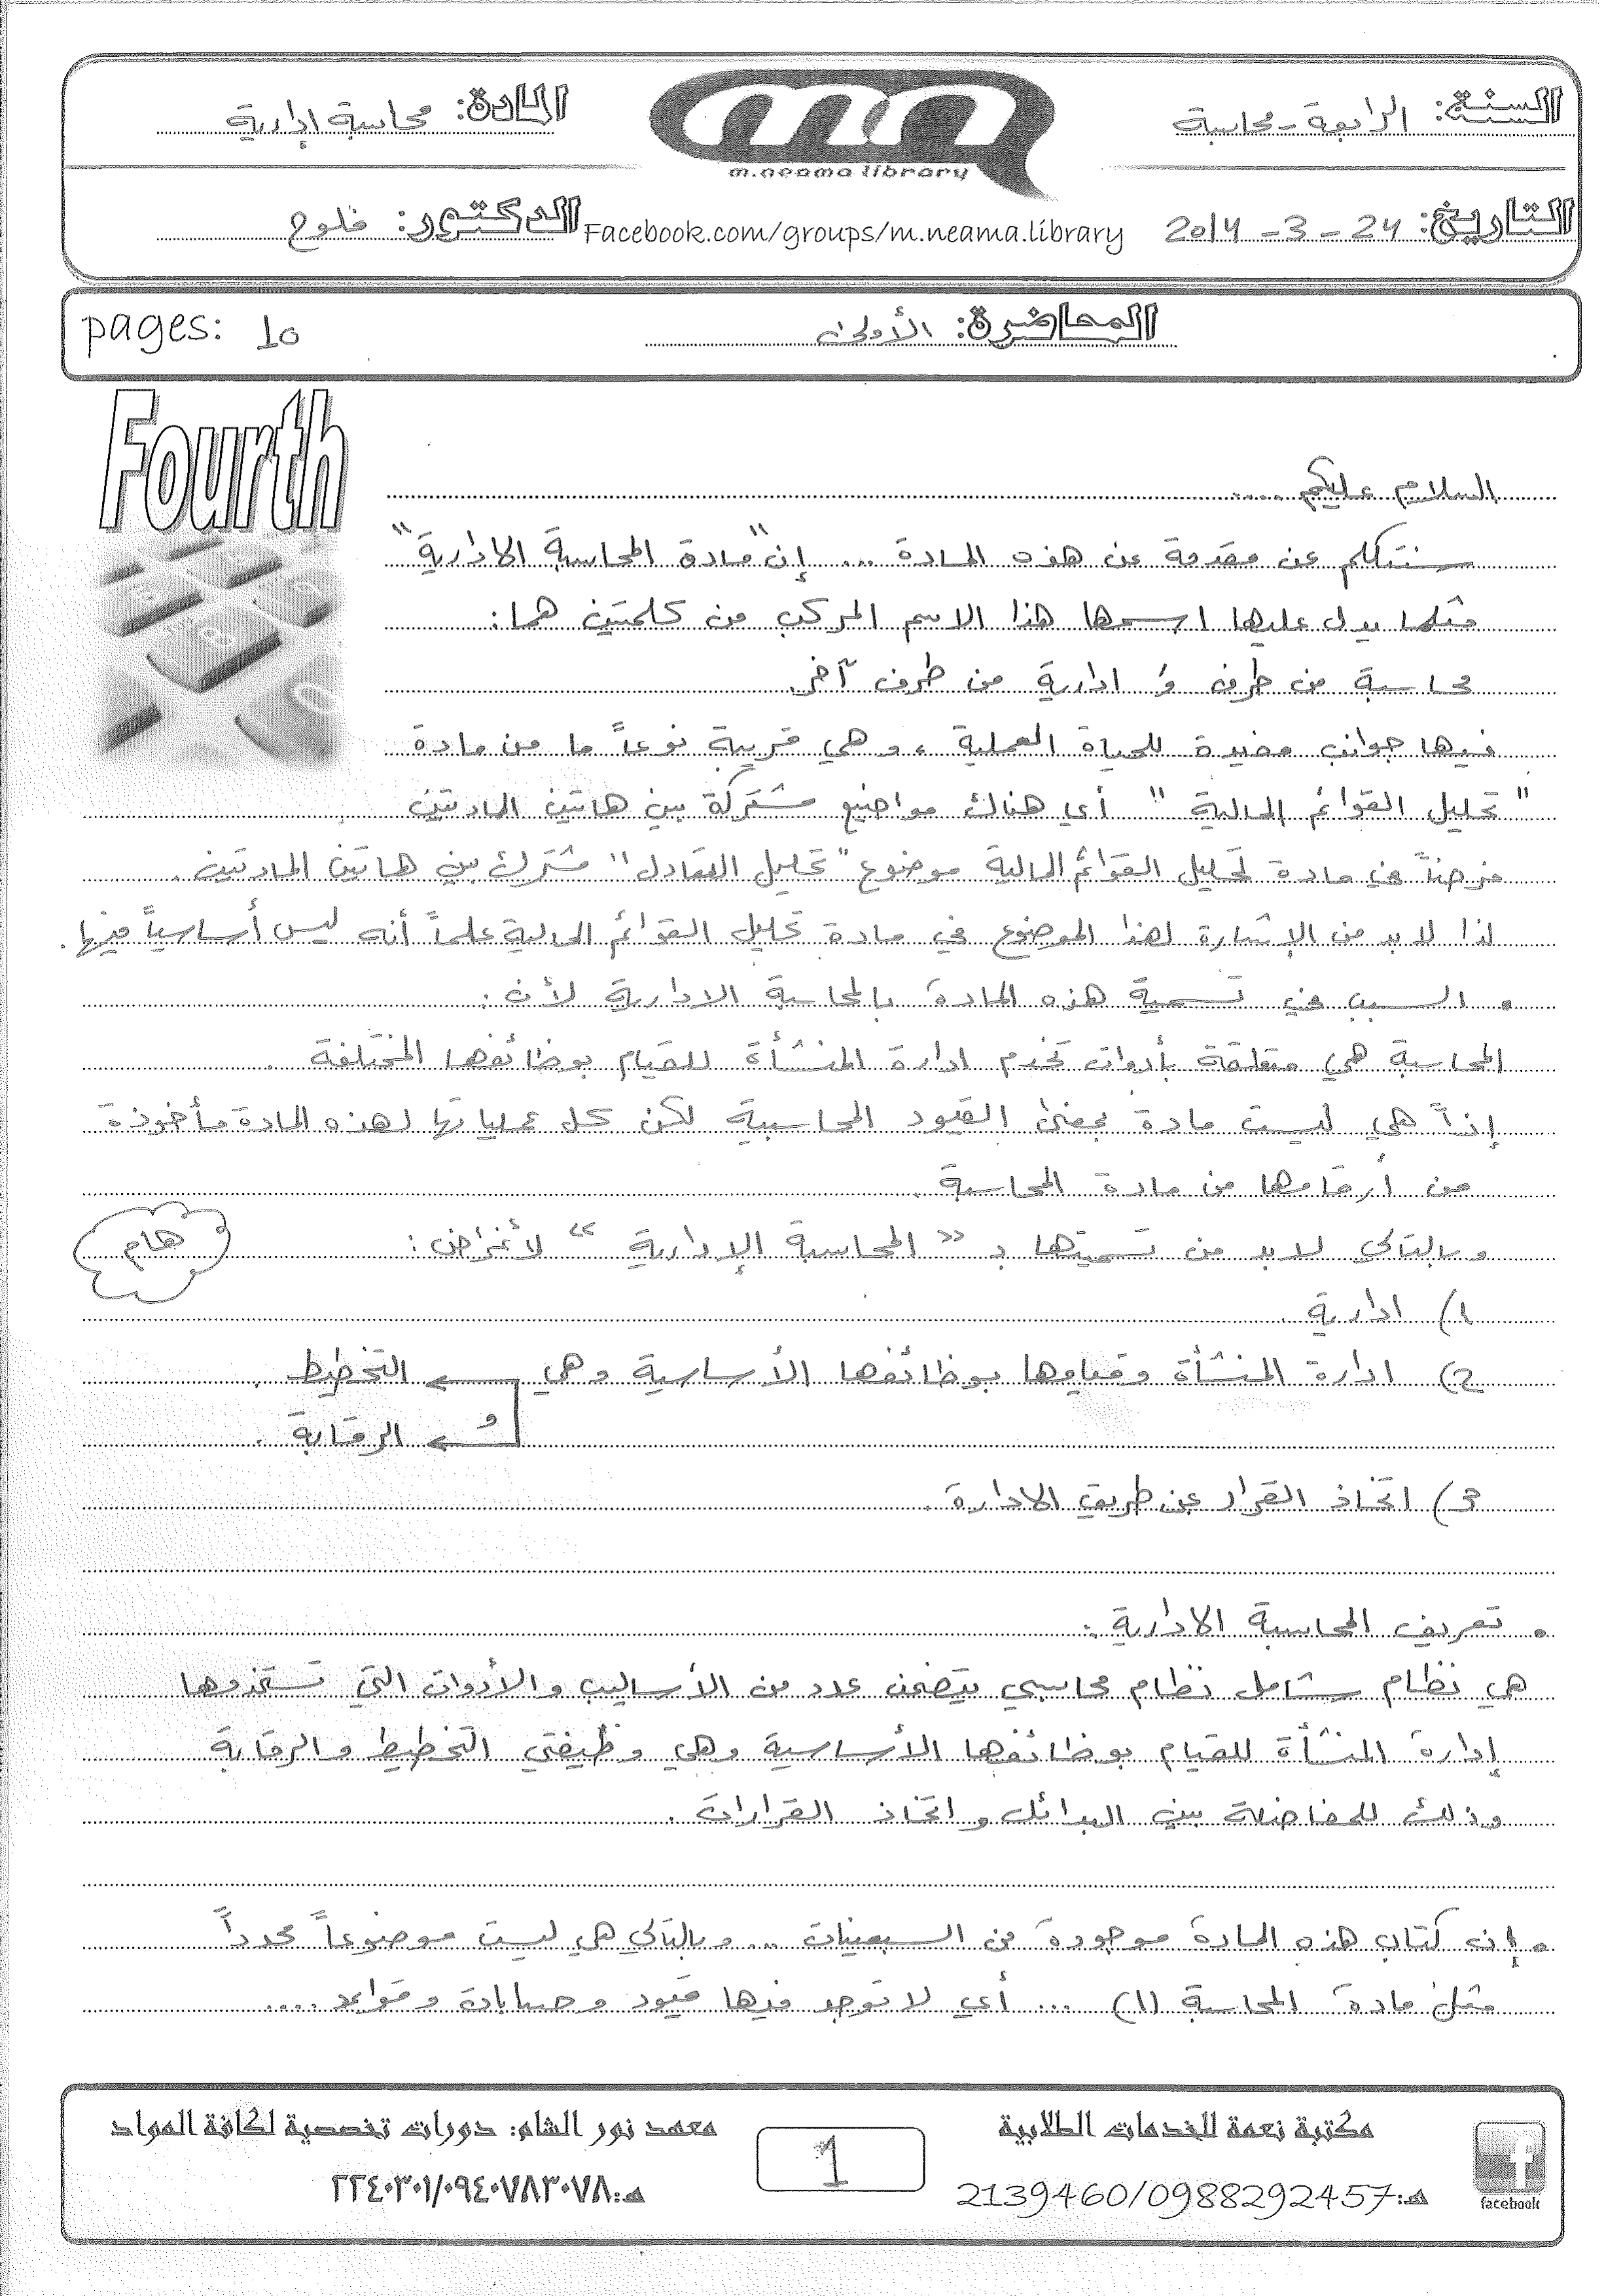 السنة: الرابعة - محاسبة
المادة: محاسبة إدارية
m.neama library
التاريخ: 24 - 3 - 2014
Facebook.com/groups/m.neama.library
الدكتور: فلوح
المحاضرة: الأولى
pages: 10
Fourth
السلام عليكم ....
سنتكلم عن مقدمة عن هذه المادة ... إن "مادة المحاسبة الادارية"
مثلما يدل عليها اسمها هذا الاسم المركب من كلمتين هما:
محاسبة من طرف و ادارية من طرف آخر.
فيها جوانب مفيدة للحياة العملية ، وهي قريبة نوعاً ما من مادة
" تحليل القوائم المالية " أي هناك مواضيع مشتركة بين هاتين المادتين
فرضاً في مادة تحليل القوائم المالية موضوع "تحليل التعادل" مشترك بين هاتين المادتين.
لذا لا بد من الإشارة لهذا الموضوع في مادة تحليل القوائم المالية علماً أنه ليس أساسياً فيها.
• السبب في تسمية هذه المادة بالمحاسبة الادارية لأن :
المحاسبة هي متعلقة بأدوات تخدم ادارة المنشأة للقيام بوظائفها المختلفة .
إذاً هي ليست مادة بمعنى القيود المحاسبية لكن كل عملياتها لهذه المادة مأخوذة
من أرقامها من مادة المحاسبة .
وبالتالي لا بد من تسميتها بـ " المحاسبة الإدارية " لأغراض :
هام
1) ادارية .
2) ادارة المنشأة وقيامها بوظائفها الأساسية وهي ← التخطيط .
و ← الرقابة .
3) اتخاذ القرار عن طريق الادارة .
• تعريف المحاسبة الادارية :
هي نظام شامل نظام محاسبي يتضمن عدد من الأساليب والأدوات التي تستخدمها
إدارة المنشأة للقيام بوظائفها الأساسية وهي وظيفتي التخطيط والرقابة
وذلك للمفاضلة بين البدائل واتخاذ القرارات .
• إن كتاب هذه المادة موجودة من السبعينات ... وبالتالي هي ليست موضوعاً محدداً
مثل مادة المحاسبة (1) ... أي لا توجد فيها قيود وحسابات وقواعد ....
مكتبة نعمة للخدمات الطلابية
معهد نور الشام: دورات تخصصية لكافة المواد
1
هـ:2139460/0988292457
هـ:٢٢٤٠٣٠١/٠٩٤٠٧٨٣٠٧٨
facebook